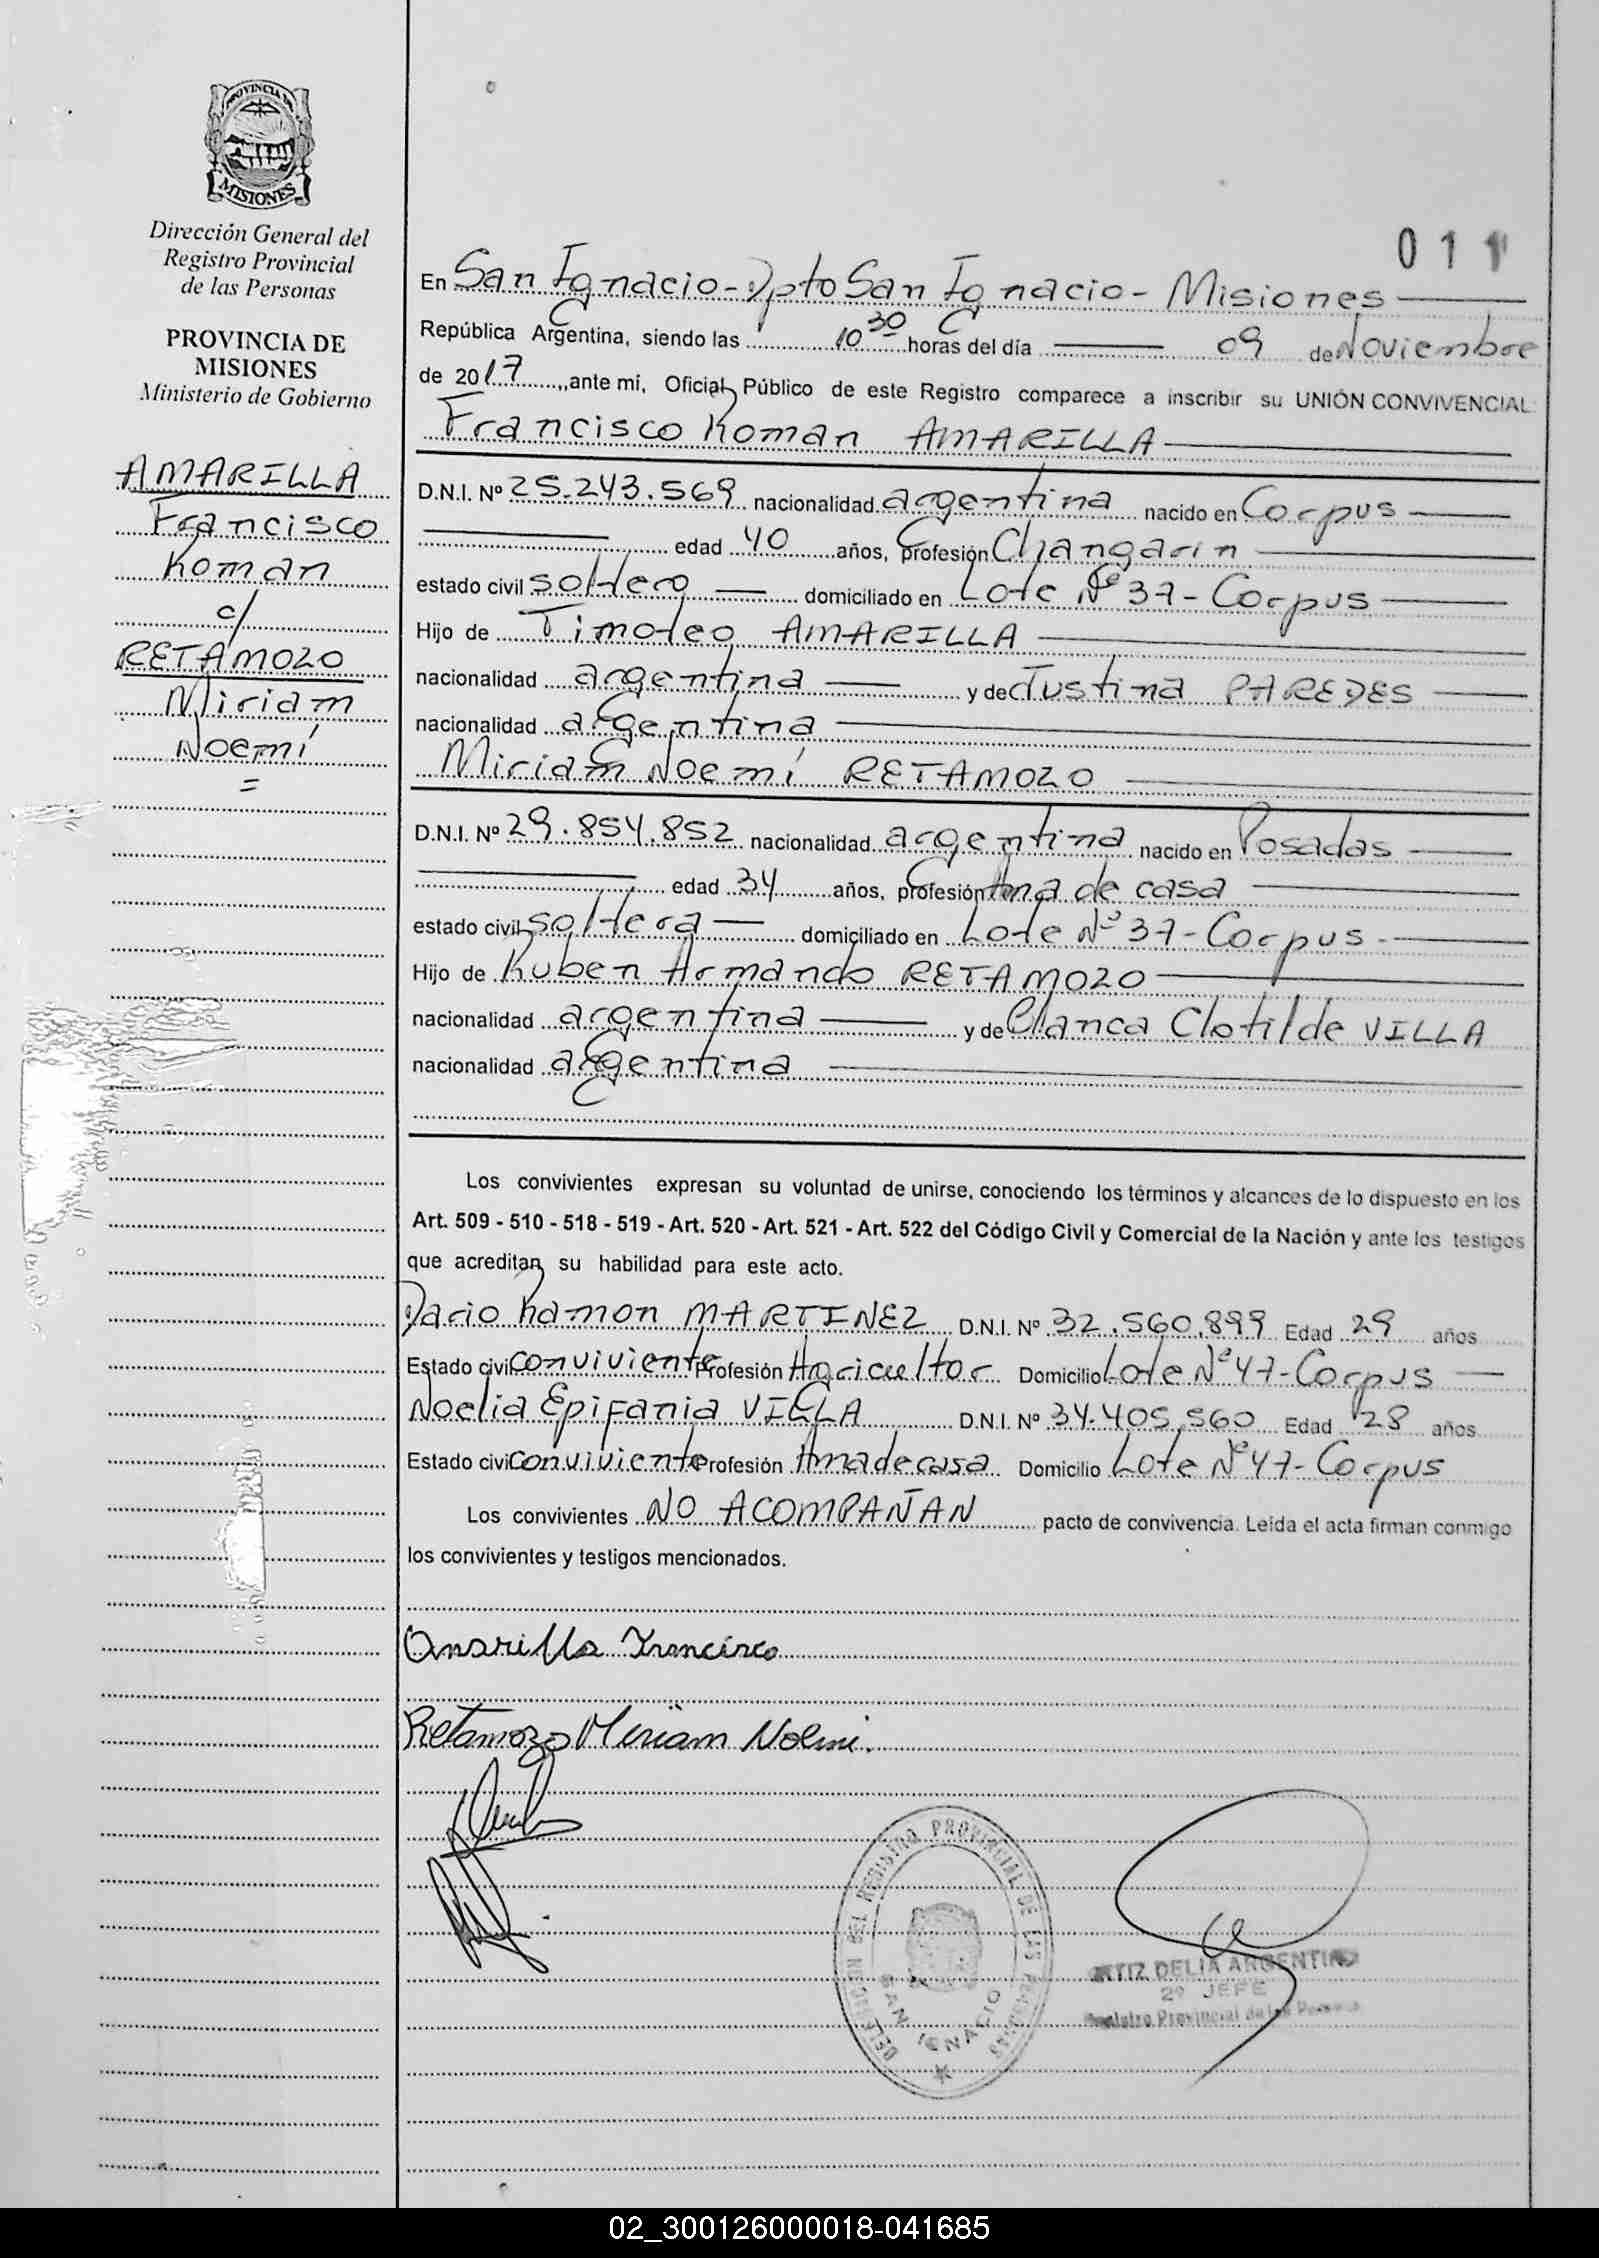 PROVINCIA DE
MISIONES
Dirección General del
Registro Provincial
de las Personas
PROVINCIA DE
MISIONES
Ministerio de Gobierno
AMARILLA
Francisco
Roman
c/
RETAMOZO
Miriam
Noemí
=
011
En San Ignacio - Dpto San Ignacio - Misiones
República Argentina, siendo las 10 30 horas del día 09 de Noviembre
de 2017, ante mi, Oficial Público de este Registro comparece a inscribir su UNIÓN CONVIVENCIAL
Francisco Roman AMARILLA
D.N.I. Nº 25.243.569 nacionalidad argentina nacido en Corpus
edad 40 años, profesión Changarin
estado civil soltero domiciliado en Lote Nº 37 - Corpus
Hijo de Timoteo AMARILLA
nacionalidad argentina y de Justina PAREDES
nacionalidad argentina
Miriam Noemí RETAMOZO
D.N.I. Nº 29.854.852 nacionalidad argentina nacido en Posadas
edad 34 años, profesión Ama de casa
estado civil soltera domiciliado en Lote Nº 37 - Corpus
Hijo de Ruben Armando RETAMOZO
nacionalidad argentina y de Blanca Clotilde VILLA
nacionalidad argentina
Los convivientes expresan su voluntad de unirse, conociendo los términos y alcances de lo dispuesto en los
Art. 509 - 510 - 518 - 519 - Art. 520 - Art. 521 - Art. 522 del Código Civil y Comercial de la Nación y ante los testigos
que acreditan su habilidad para este acto.
Dario Ramon MARTINEZ D.N.I. Nº 32.560.899 Edad 29 años
Estado civil conviviente Profesión Agricultor Domicilio Lote Nº 47 - Corpus
Noelia Epifania VILLA D.N.I. Nº 34.405.560 Edad 28 años
Estado civil conviviente Profesión Ama de casa Domicilio Lote Nº 47 - Corpus
Los convivientes NO ACOMPAÑAN pacto de convivencia. Leída el acta firman conmigo
los convivientes y testigos mencionados.
Amarilla Francisco
Retamozo Miriam Noemi.
DEL REGISTRO PROVINCIAL DE LAS PERSONAS
SAN IGNACIO
ORTIZ DELIA ARGENTINA
2º JEFE
Registro Provincial de las Personas
02_300126000018-041685